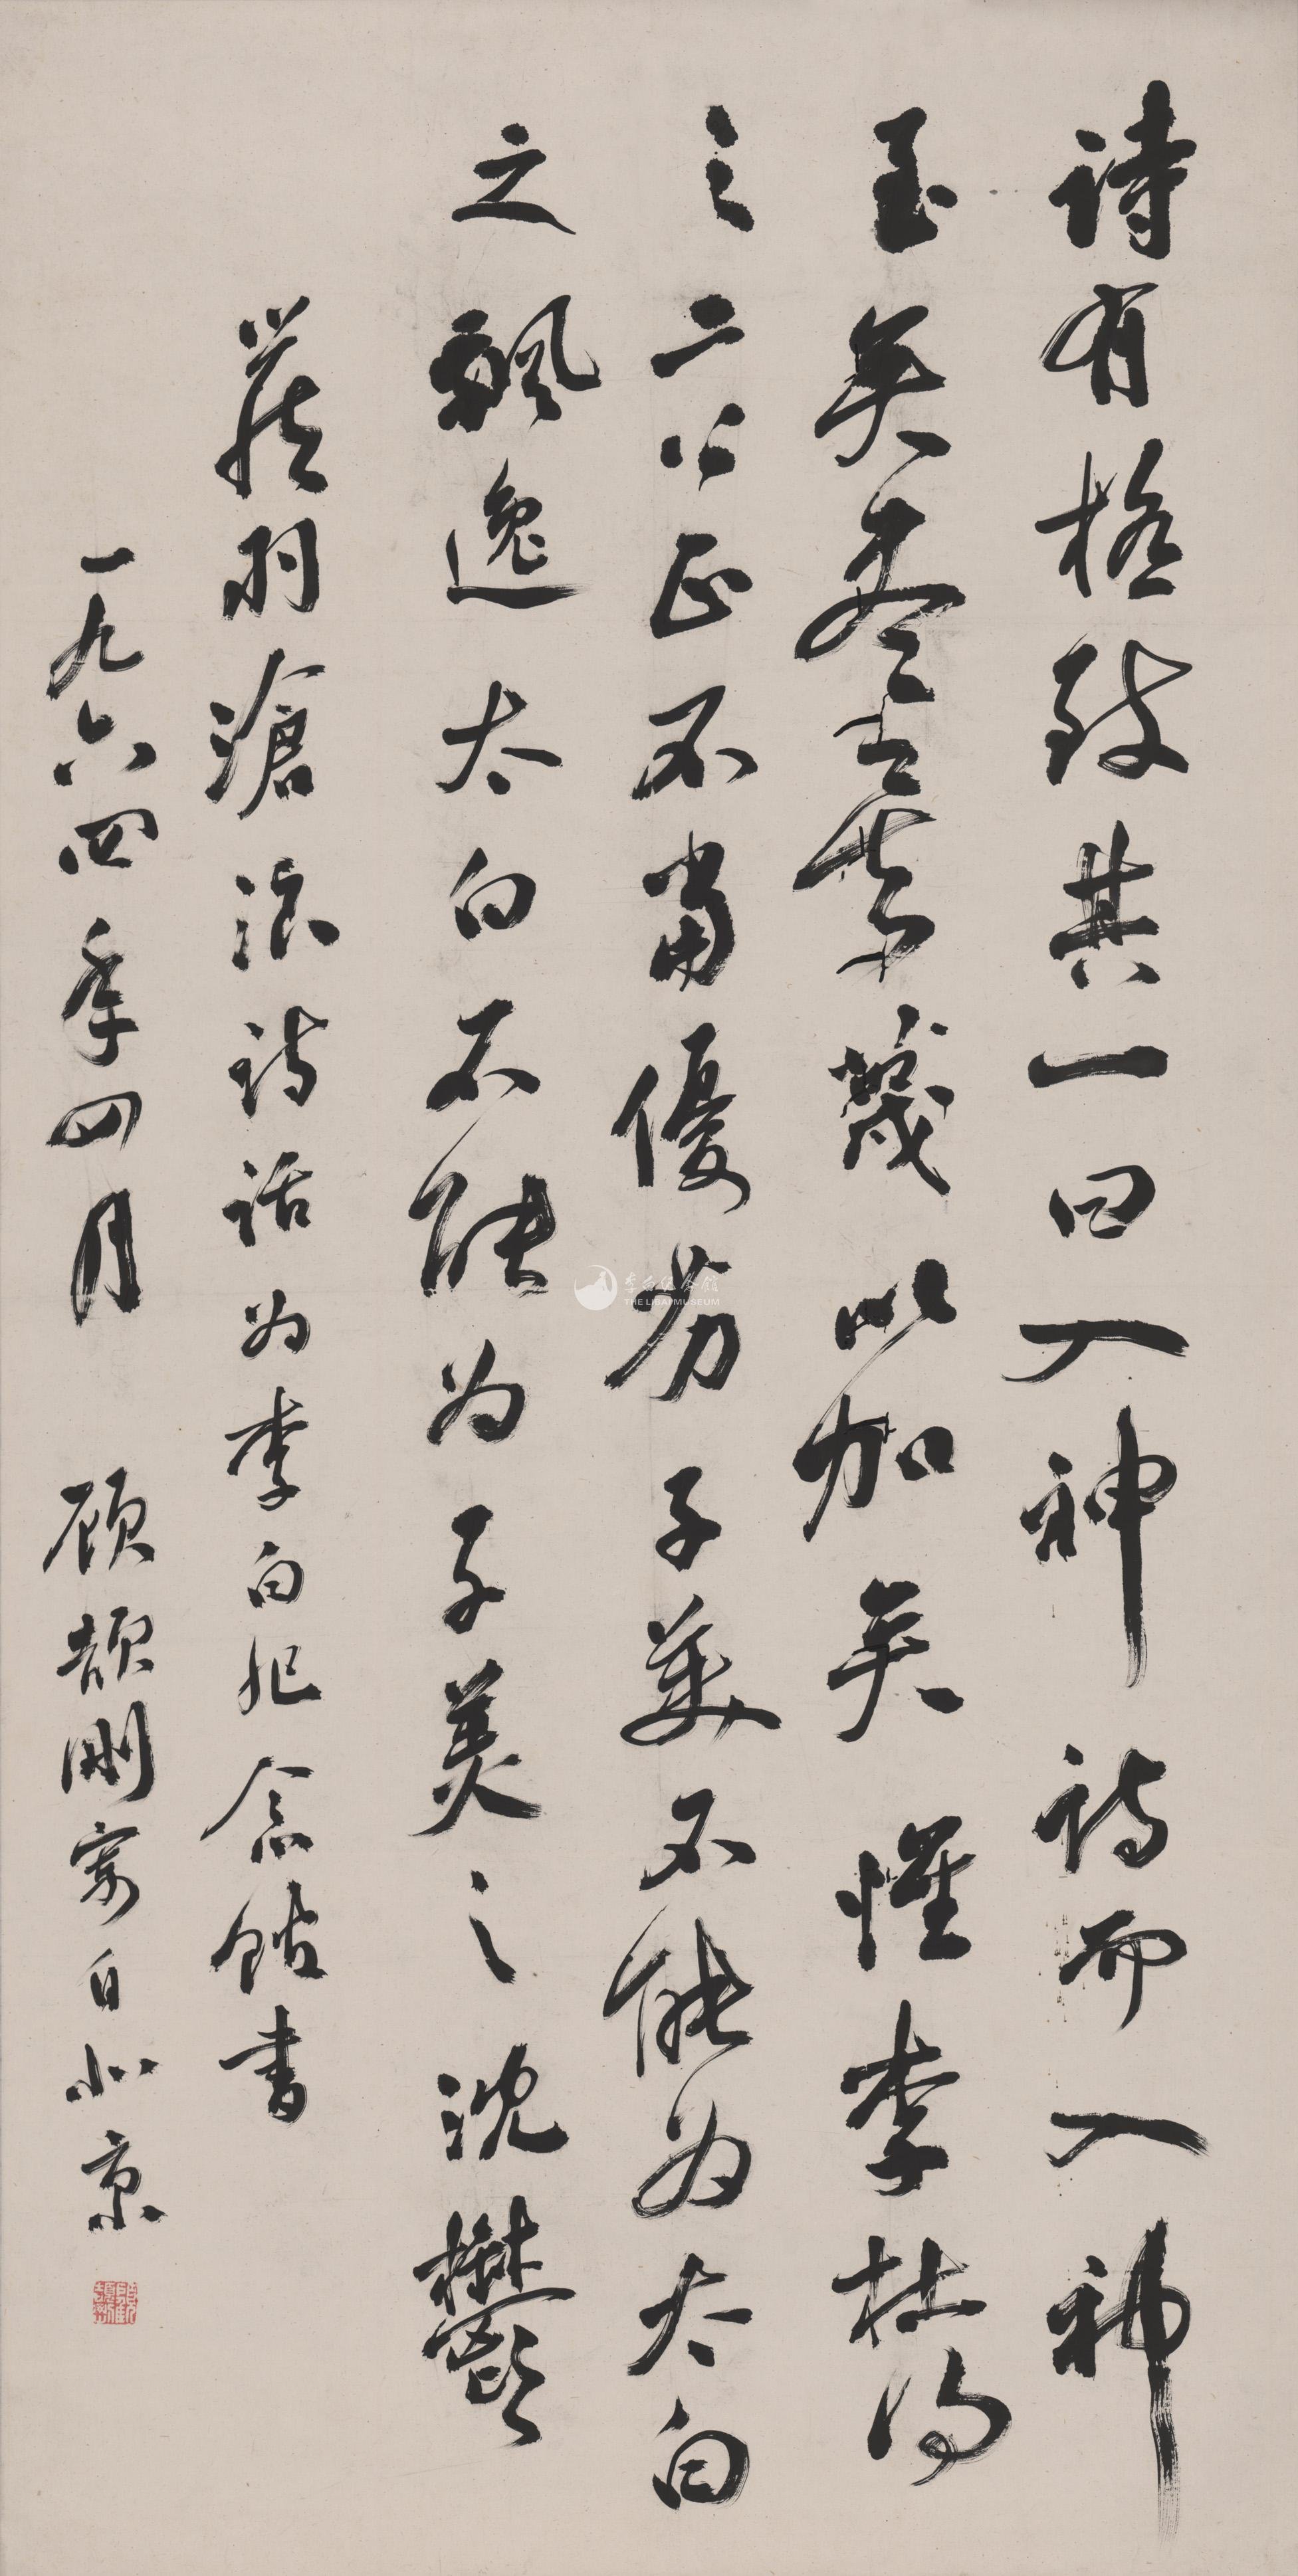 詩有格致其一曰入神詩而入神
至矣盡矣蔑以加矣惟李杜得
之二公正不當優劣子美不能為太白
之飄逸太白不能为子美之沈鬱
嚴羽滄浪詩話为李白纪念馆书
一九六四年四月 顾颉刚寄自北京
李白纪念馆
THE LIBAI MUSEUM